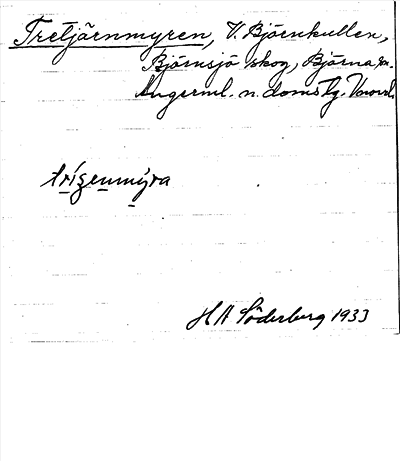 Tretjärnmyren, V. Björnkullen,
Björnsjö skog, Björna sn.
Ångerml. n. doms Tg.
trizenmýra
HA Söderberg 1933